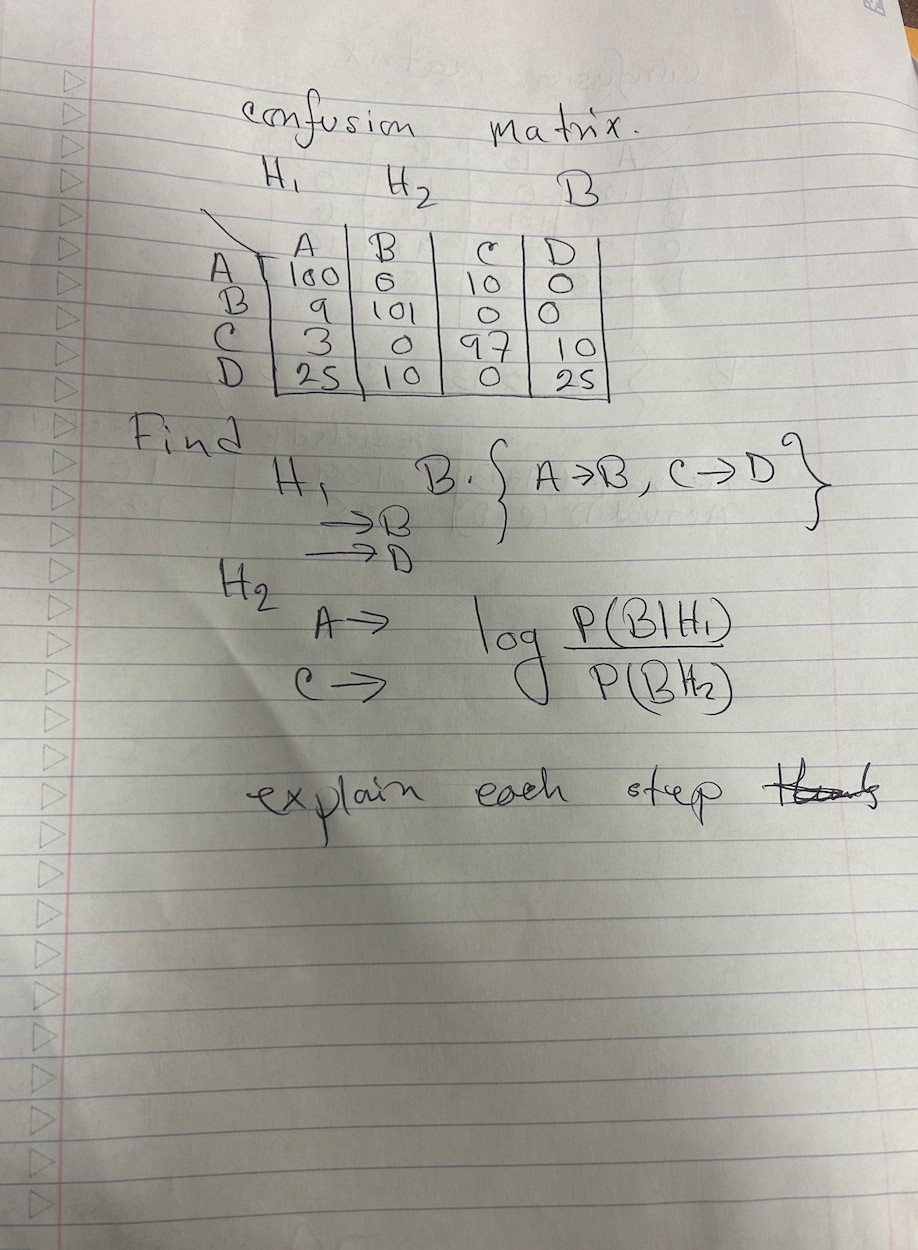 confusion matrix.
H₁ H₂ B
A B C D
A 100 6 10 0
B 9 101 0 0
C 3 0 97 10
D 25 10 0 25
Find
H₁ B. { A→B, C→D }
→B
→D
H₂
A→ log P(B|H₁)
C→ P(BH₂)
explain each step